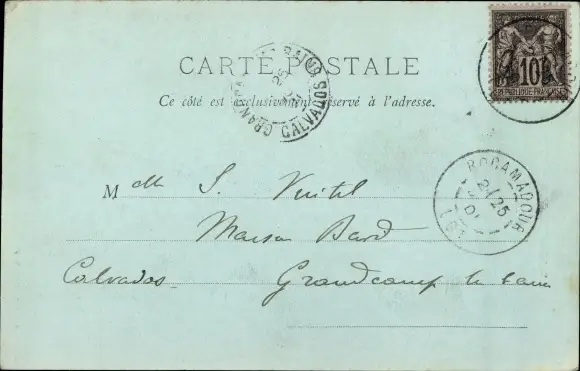 CARTE POSTALE
Ce côté est exclusivement réservé à l'adresse.
10
REPUBLIQUE FRANÇAISE
CALVADOS
ROCAMADOUR
25
Mlle S.
Maison Bard
Calvados Grandcamp les bains